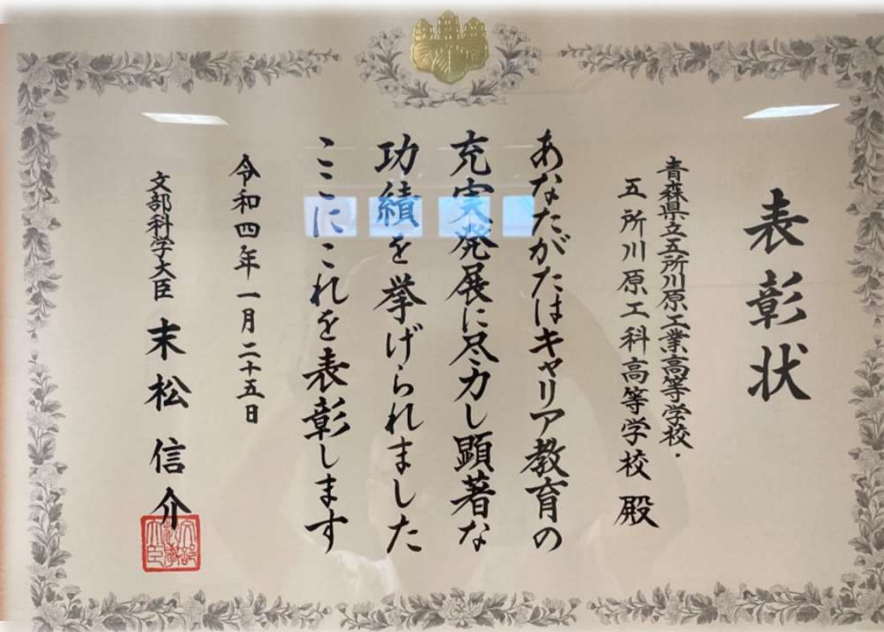 表彰状
青森県立五所川原工業高等学校・
五所川原工科高等学校 殿
あなたがたはキャリア教育の
充実発展に尽力し顕著な
功績を挙げられました
ここにこれを表彰します
令和四年一月二十五日
文部科学大臣 末松信介